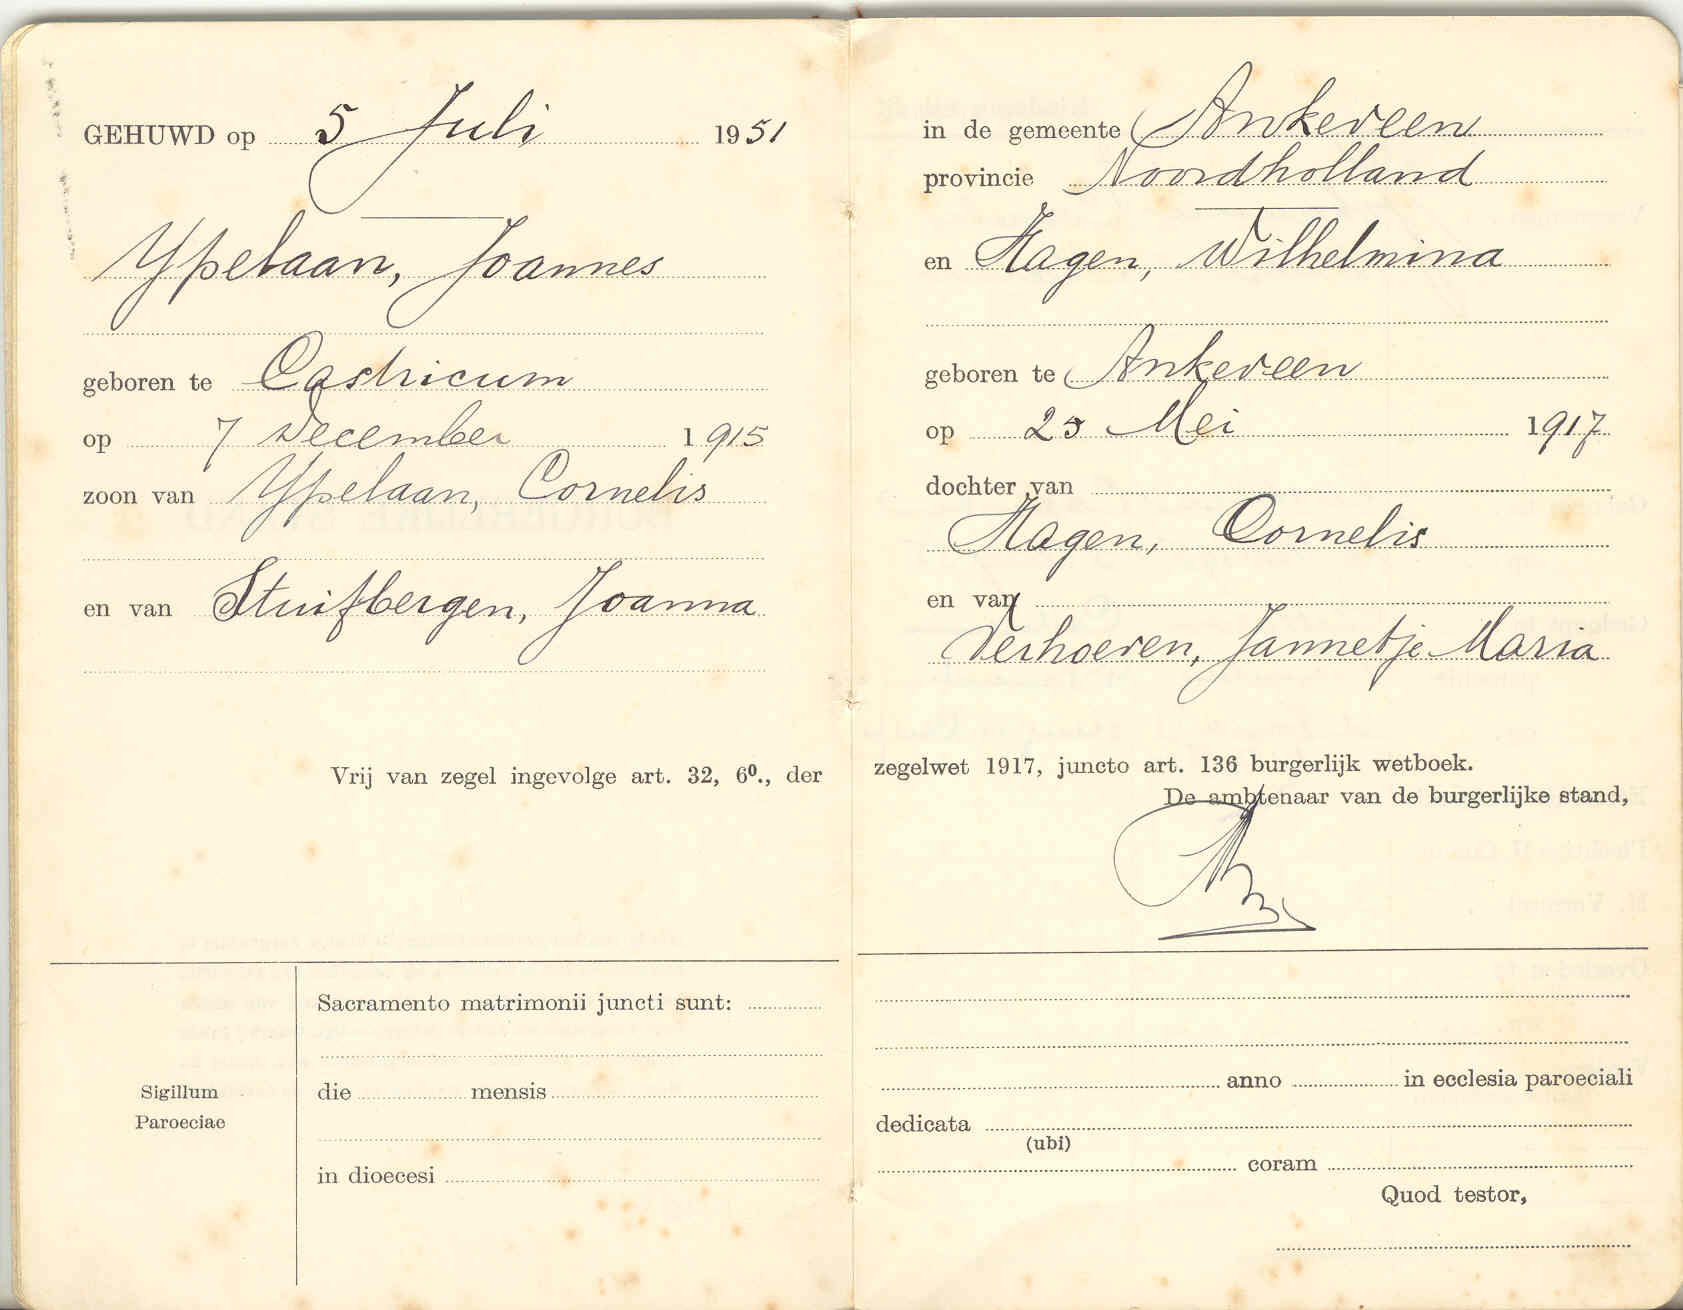 GEHUWD op 5 Juli 1951
Ypelaan, Joannes
geboren te Castricum
op 7 December 1915
zoon van Ypelaan, Cornelis
en van Stuifbergen, Joanna
Vrij van zegel ingevolge art. 32, 6⁰., der
Sacramento matrimonii juncti sunt:
Sigillum
Paroeciae
die mensis
in dioecesi
in de gemeente Ankeveen
provincie Noordholland
en Hagen, Wilhelmina
geboren te Ankeveen
op 25 Mei 1917
dochter van
Hagen, Cornelis
en van
Verhoeven, Jannetje Maria
zegelwet 1917, juncto art. 136 burgerlijk wetboek.
De ambtenaar van de burgerlijke stand,
anno in ecclesia paroeciali
dedicata
(ubi)
coram
Quod testor,